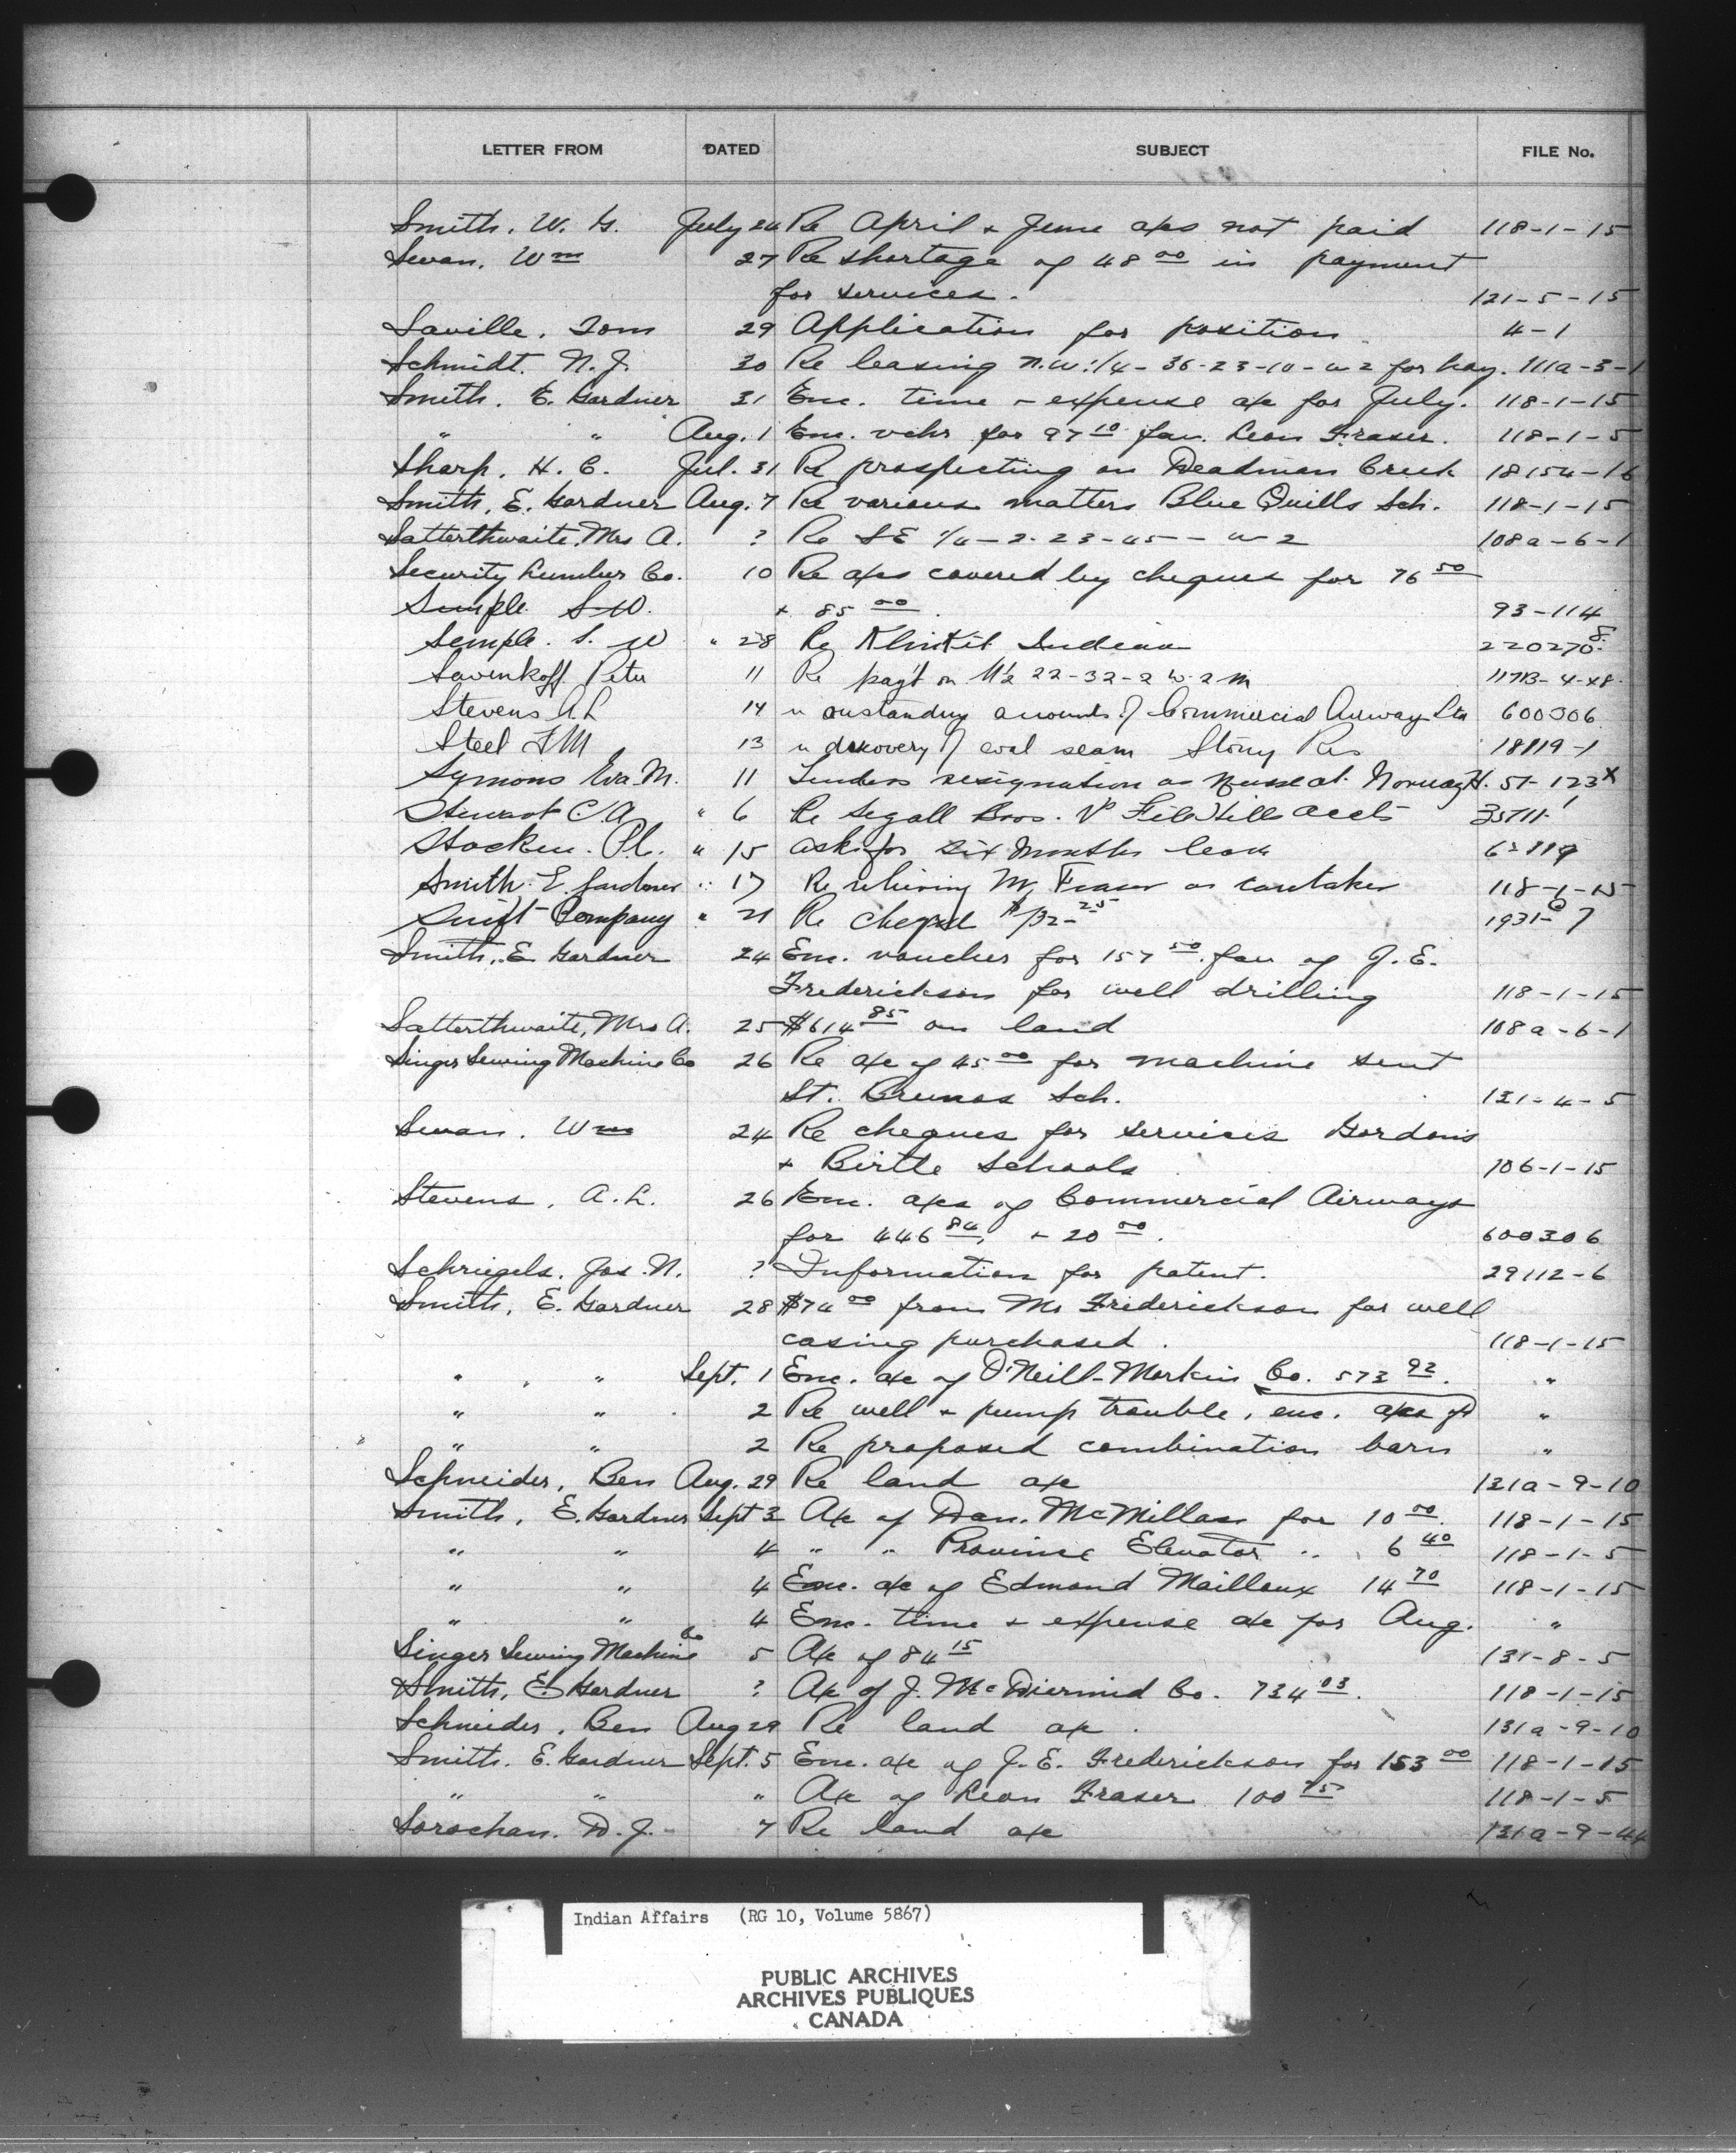 LETTER FROM DATED SUBJECT FILE No.
Smith, W. G. July 24 Re April + June a/cs not paid 118-1-15
Swan, Wm 27 Re shortage of 48 00 in payment
for services. 121-5-15
Saville, Tom 29 Application for position 4-1
Schmidt, N. J. 30 Re leasing N.W. 1/4 - 36-23-10-W2 for hay. 111a-3-1
Smith, E. Gardner 31 Enc. time + expense a/c for July. 118-1-15
" " Aug. 1 Enc. vchr for 97 10 fav. Leon Fraser. 118-1-5
Sharp, H. C. Jul. 31 Re prospecting on Deadman Creek 18154-16
Smith, E. Gardner Aug. 7 Re various matters Blue Quills Sch. 118-1-15
Satterthwaite, Mrs A. ? Re SE 1/4-2-23-45-W2 108a-6-1
Security Lumber Co. 10 Re a/cs covered by cheques for 76 50
Semple S.W. + 85 00. 93-114
Semple. S. W " 28 Re Klinkit Indian 220270-8
Savenkoff Peter 11 Re pay't on N½ 22-32-2 W.2m 117B-4-X8.
Stevens A L 14 " outstanding accounts of Commercial Airway Ltd 600306
Steel F M 13 " discovery of coal seam Stony Res 18119-1
Symons Eva M. 11 Tenders resignation as Nurse at Norway H. 51-123x
Stewart C A " 6 Re Segall Bros. File Hills accts 35711
Stocken. P.C. " 15 asks for six months leave 62119
Smith E. Gardner " 17 Re relieving Mr Fraser as caretaker 118-1-15
Swift Company " 21 Re cheque $132-25 1931-67
Smith, E. Gardner 24 Enc. voucher for 157 50 fav of J. E.
Frederickson for well drilling 118-1-15
Satterthwaite, Mrs A. 25 $614 85 on land 108a-6-1
Singer Sewing Machine Co 26 Re a/c of 45 00 for machine sent
St. Brunos Sch. 131-4-5
Swan, Wm 24 Re cheques for services Gordons
+ Birtle Schools 106-1-15
Stevens, A. L. 26 Enc. a/cs of Commercial Airways
for 446 84, + 20 00. 600306
Schriegels, Jos. N. ? Information for patent. 29112-6
Smith, E. Gardner 28 $74 00 from Mr Frederickson for well
casing purchased. 118-1-15
" " Sept. 1 Enc. a/c of O'Neill-Morkin Co. 573 92. "
" " 2 Re well + pump trouble, enc. a/cs of "
" " 2 Re proposed combination barn "
Schneider, Ben Aug. 29 Re land a/c 131a-9-10
Smith, E. Gardner Sept 3 A/c of Dan. McMillan for 10 00. 118-1-15
" " 4 " " Province Elevator " 6 40 118-1-5
" " 4 Enc. a/c of Edmond Mailloux 14 70 118-1-15
" " 4 Enc. time + expense a/c for Aug. "
Singer Sewing Machine Co 5 A/c of 84 15 131-8-5
Smith, E. Gardner ? A/c of J. McDiermid Co. 734 03. 118-1-15
Schneider, Ben Aug 29 Re land a/c. 131a-9-10
Smith, E. Gardner Sept. 5 Enc. a/c of J. E. Frederickson for 153 00 118-1-15
" " " A/c of Leon Fraser 100 75 118-1-5
Sorochan, D. J. 7 Re land a/c 131a-9-44
Indian Affairs (RG 10, Volume 5867)
PUBLIC ARCHIVES
ARCHIVES PUBLIQUES
CANADA